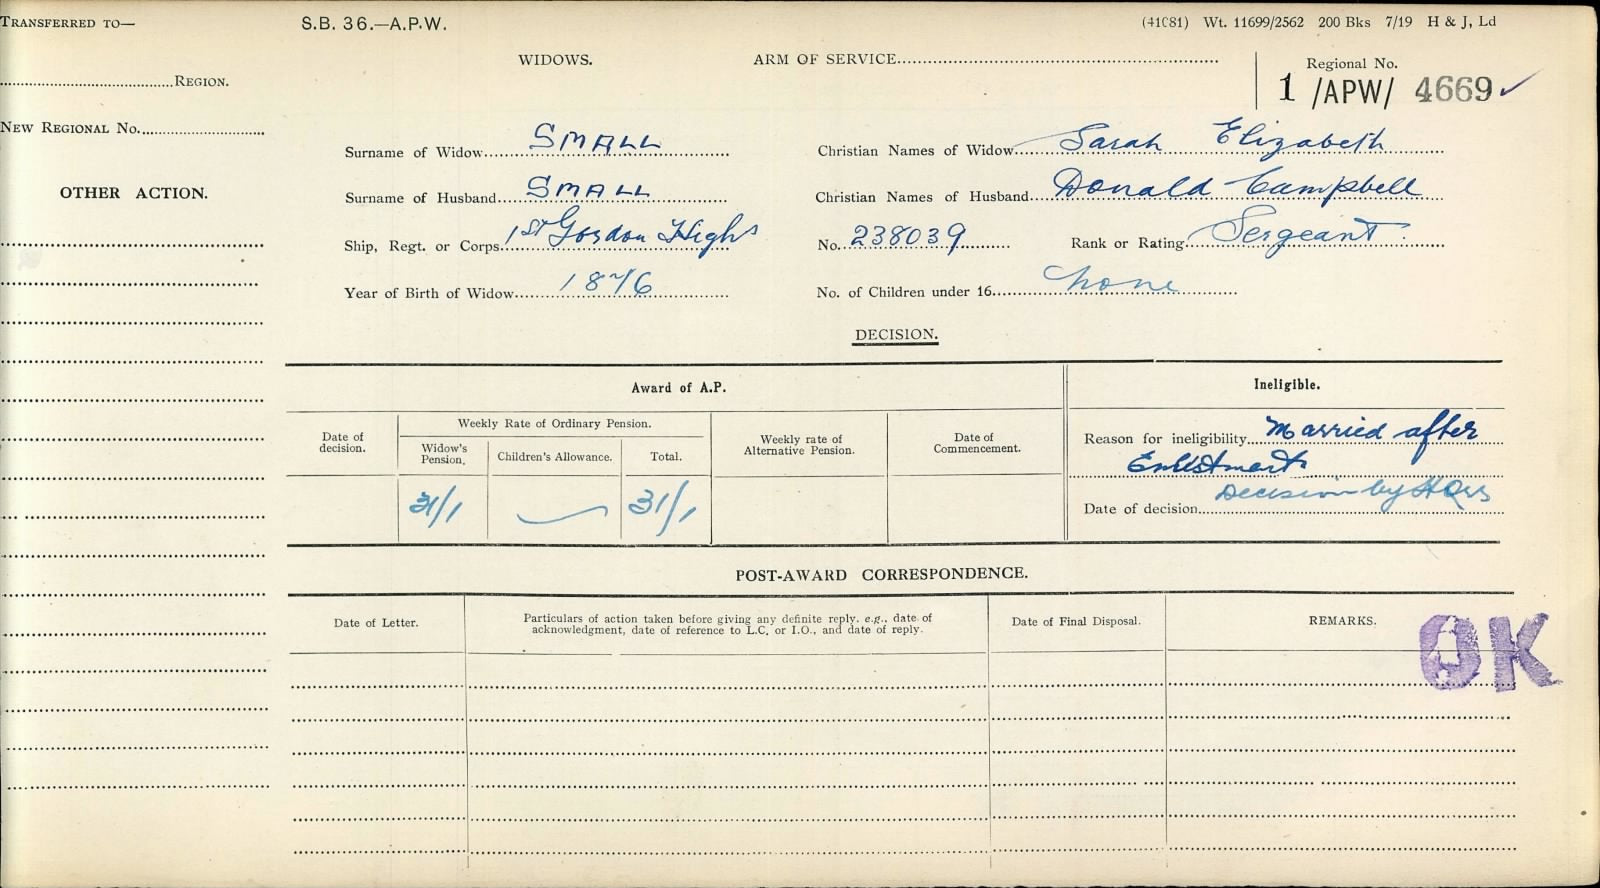 TRANSFERRED TO—
S.B. 36.—A.P.W.
(41081) Wt. 11699/2562 200 Bks 7/19 H & J, Ld
REGION.
WIDOWS.
ARM OF SERVICE
Regional No.
1 /APW/ 4669 ✓
NEW REGIONAL No.
Surname of Widow SMALL
Christian Names of Widow Sarah Elizabeth
OTHER ACTION.
Surname of Husband SMALL
Christian Names of Husband Donald Campbell
Ship, Regt. or Corps 1st Gordon Highs
No. 238039
Rank or Rating Sergeant
Year of Birth of Widow 1876
No. of Children under 16 none
DECISION.
Award of A.P.
Ineligible.
Date of decision.
Weekly Rate of Ordinary Pension.
Widow's Pension.
Children's Allowance.
Total.
Weekly rate of Alternative Pension.
Date of Commencement.
Reason for ineligibility Married after
Enlistment
31/1
31/1
Decision by HQrs
Date of decision
POST-AWARD CORRESPONDENCE.
Date of Letter.
Particulars of action taken before giving any definite reply. e.g., date of
acknowledgment, date of reference to L.C. or I.O., and date of reply.
Date of Final Disposal.
REMARKS.
OK